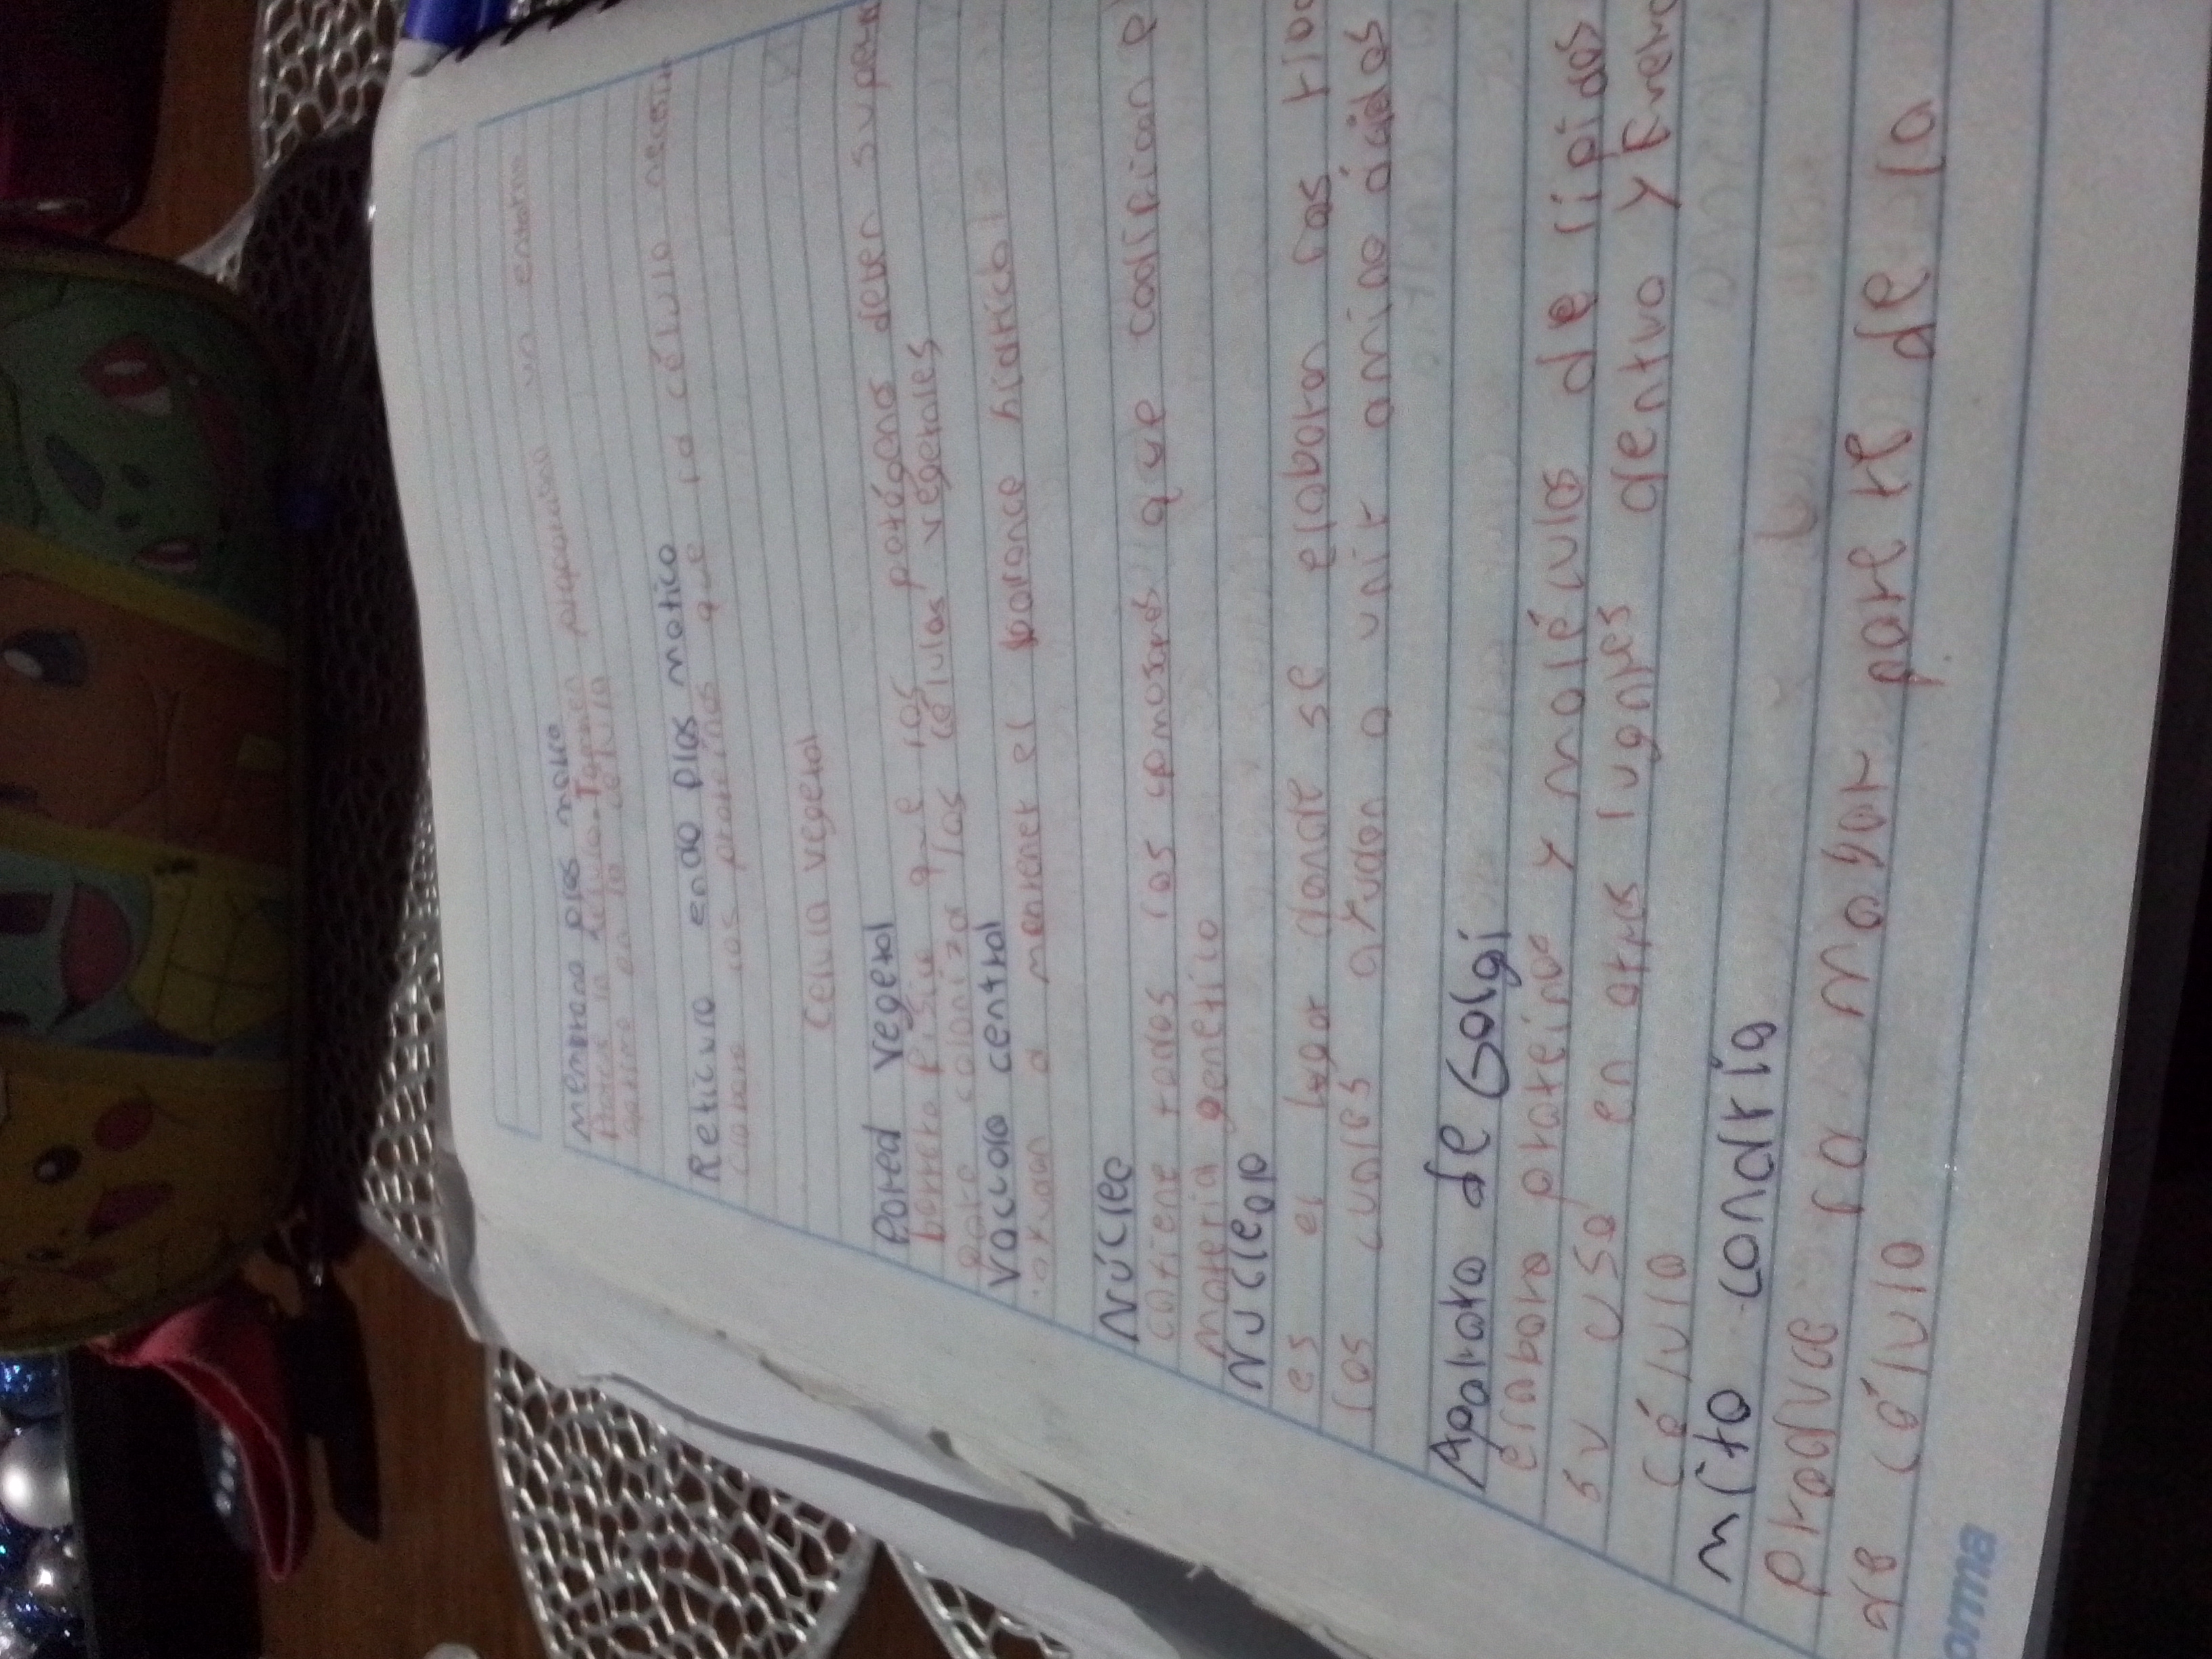 membrana plas matica
Protege la célula. Tambien proporciona un entorno
optimo en la célula
Reticulo endo plas matico
las proteínas que la célula necesita
Celula vegetal
Pared vegetal
barrera fisica que los patógenos deben supera
para colonizar las células vegetales
Vacuola central
ayudan a mantener el balance hidrico
Núcleo
contiene todos los que codifican
materia genetico
Nucleolo
es el lugar donde se elaboran los ribo
las cuales ayudan a unir amino ácidos
Aparato de Golgi
elabora proteínas y moléculas de lípidos
su uso en otros lugares dentro y fuera
Célula
mito condria
produce la mayor parte de la
de célula
orma